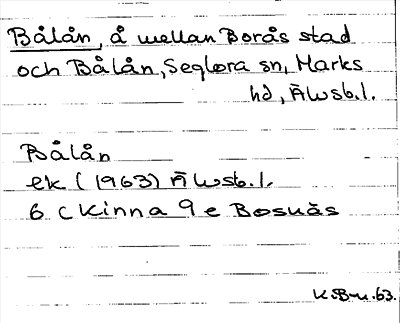 Bålån, å mellan Borås stad
och Bålån, Seglora sn, Marks
hd, Älvsb.l.
Bålån
ek (1963) Älvsb.l.
6 C Kinna 9 e Bosnäs
K.B-m.63.